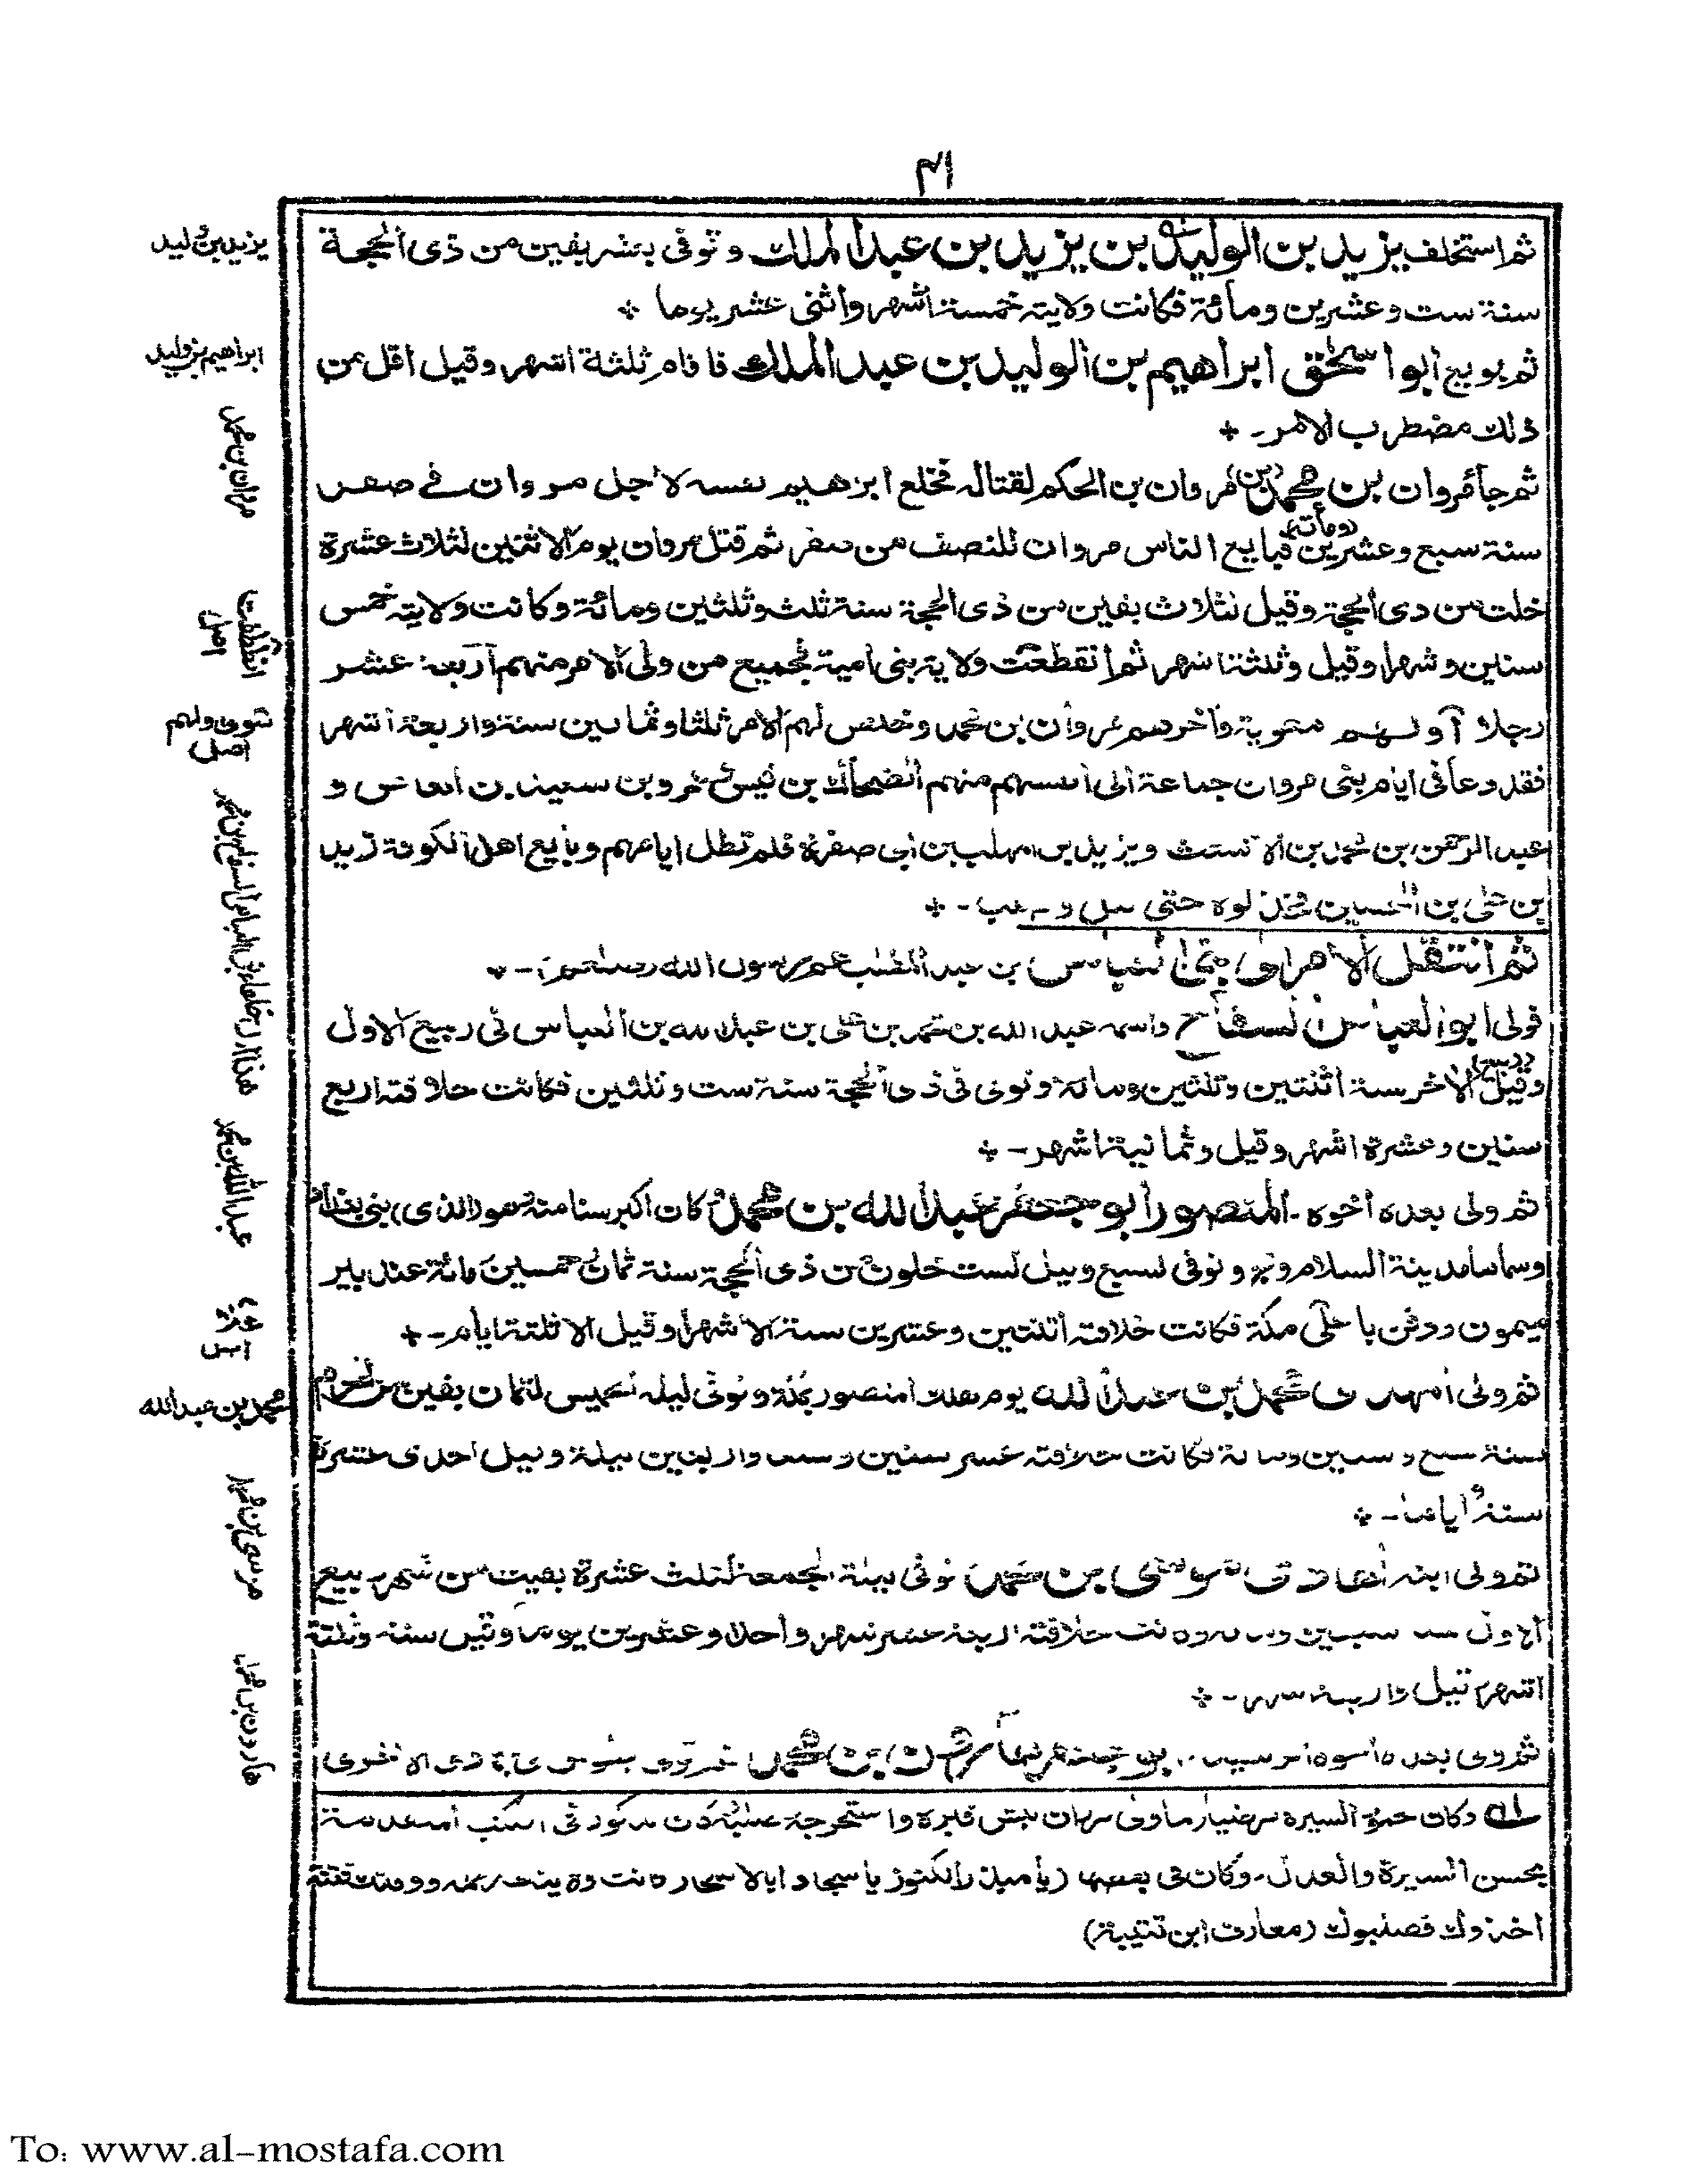 ٤١
ثم استخلف يزيد بن الوليد بن يزيد بن عبد الملك وتوفى بعشر بقين من ذى الحجة
سنة ست وعشرين ومائة فكانت ولايته خمسة اشهر واثنى عشر يوما
ثم بويع ابو اسحق ابراهيم بن الوليد بن عبد الملك فاقام ثلثة اشهر وقيل اقل من
ذلك مضطرب الامر -
ثم جاء مروان بن محمد (بن) مروان بن الحكم لقتاله فخلع ابرهيم نفسه لاجل مروان فى صفر
سنة سبع وعشرين (ومائة) فبايع الناس مروان للنصف من صفر ثم قتل مروان يوم الاثنين لثلاث عشرة
خلت من ذى الحجة وقيل لثلاث بقين من ذى الحجة سنة ثلث وثلثين ومائة وكانت ولايته خمس
سنين وشهرا وقيل وثلثة اشهر ثم انقطعت ولاية بنى امية فجميع من ولى الامر منهم اربعة عشر
رجلا اولهم معوية واخرهم مروان بن محمد وخلص لهم الامر ثلثا وثمانين سنة واربعة اشهر
فقد دعا فى ايام بنى مروان جماعة الى انفسهم منهم الضحاك بن قيس عمرو بن سعيد بن العاص و
عبد الرحمن بن محمد بن الاشعث ويزيد بن المهلب بن ابى صفرة فلم تطل ايامهم وبايع اهل الكوفة زيد
بن على بن الحسين فخذلوه حتى قتل وصلب -
ثم انتقل الامر الى بنى العباس بن عبد المطلب عم رسول الله صلعم -
فولى ابو العباس السفاح واسمه عبد الله بن محمد بن على بن عبد الله بن العباس فى ربيع الاول
وقيل (ربيع) الاخر سنة اثنتين وثلثين ومائة وتوفى فى ذى الحجة سنة ست وثلثين فكانت خلافته اربع
سنين وعشرة اشهر وقيل وثمانية اشهر -
ثم ولى بعده اخوه المنصور ابو جعفر عبد الله بن محمد كان اكبر سنا منه (هو الذى) بنى بغداد
وسماها مدينة السلام وتوفى لسبع وقيل لست خلون من ذى الحجة سنة ثمان خمسين مائة عند بير
ميمون ودفن باعلى مكة فكانت خلافته اثنتين وعشرين سنة الا شهرا وقيل الا ثلثة ايام -
ثم ولى المهدى محمد بن عبد الله يوم هلك المنصور بمكة وتوفى ليلة الخميس لثمان بقين من المحرم
سنة سبع وستين ومائة فكانت خلافته عشر سنين واربعين ليلة وقيل احدى عشرة
سنة واياما -
ثم ولى ابنه الهادى موسى بن محمد توفى ليلة الجمعة لثلث عشرة بقيت من شهر ربيع
الاول سنة سبعين ومائة وكانت خلافته اربعة عشر شهرا واحدا وعشرين يوما وقيل سنة وثلثة
اشهر وقيل واربعة اشهر -
ثم ولى بعده اخوه الرشيد ابو جعفر هارون بن محمد ثم توفى بطوس فى جمادى الاخرى
وكان حميد السيرة نبش قبره واستخرجه
بحسن السيرة والعدل - وكان فى بعضها (يا مبذر الكنوز يا سجادا بالاسحار كانت
اخذوك فصلبوك (معارف ابن قتيبة)
يزيد بن وليد
ابراهيم بن وليد
مروان بن محمد
انقطعت
اصل
اصل
عبد الله بن محمد
محمد بن عبد الله
موسى بن محمد
هارون بن محمد
To: www.al-mostafa.com